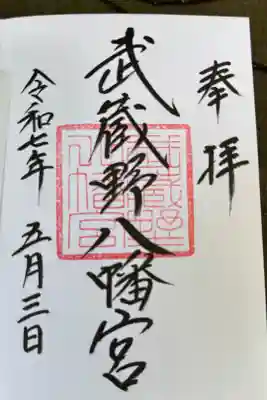 奉拝
武蔵野八幡宮
令和七年 五月三日